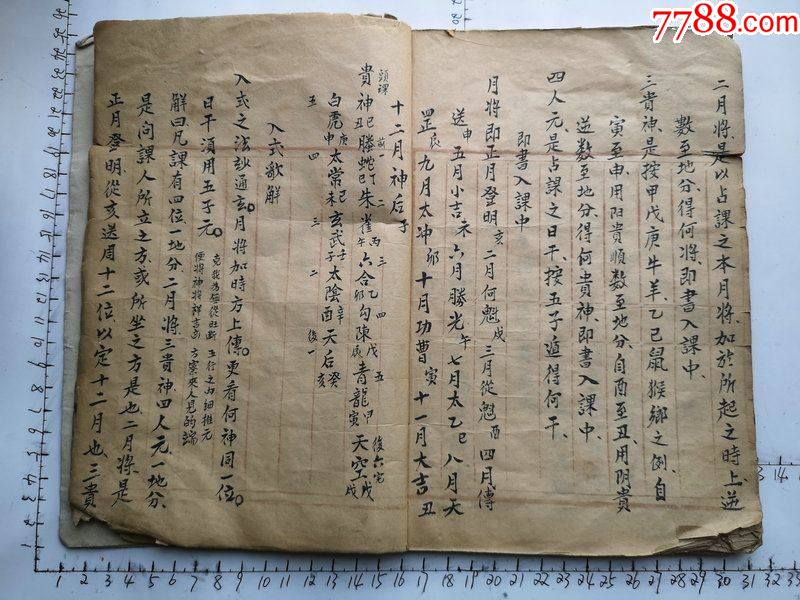 7788.com
二月將是以占課之本月將加於所起之時上逆
數至地分得何將即書入課中
三貴神是按甲戊庚牛羊乙己鼠猴鄉之例自
寅至申用阳貴順數至地分自酉至丑用阴貴
逆數至地分得何貴神即書入課中
四人元是占課之日干按五子遁得何干
即書入課中
月將即正月登明亥二月何魁戌三月從魁酉四月傳
送申五月小吉未六月勝光午七月太乙巳八月天
罡辰九月太冲卯十月功曹寅十一月大吉丑
十二月神后子
頭課 前一 二 三 四 五 後六宅
貴神己丑螣蛇丁巳朱雀丙午六合乙卯勾陳戊辰青龍甲寅天空戊戌
白虎庚申太常己未玄武壬子太陰辛酉天后癸亥
五 四 三 二 後一
入式歌解
入式之法玅通玄月將加時方上傳更看何神同一位
日干須用五子元 克我為 從旺断 五行之內細推元
便將神將祥吉凶 方案來人見的端
解曰凡課有四位一地分二月將三貴神四人元一地分
是問課人所立之方或所坐之方是也二月將是
正月登明從亥送周十二位以定十二月也三貴